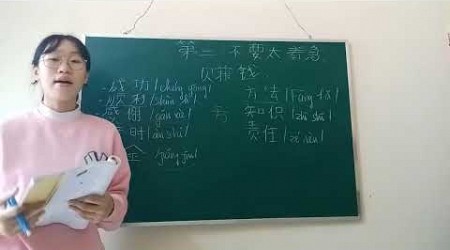 第二 不要太着急
赚钱
成功 /chéng gōng/
顺利 /shùn lì/
感谢 /gǎn xiè/
时 /àn shí/
金 /jiǎng jīn/
方法 /Fāng fǎ/
知识 /zhī shi/
责任 /zé rèn/